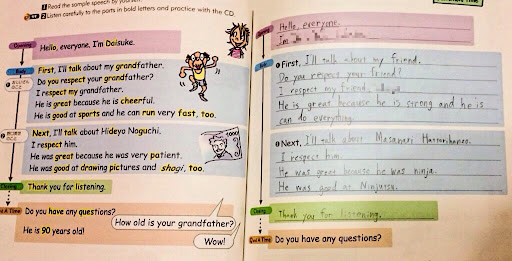 Read the sample speech by
2 Listen carefully to the parts in bold letters and practice with the CD.
Opening
Hello, everyone. I'm Daisuke.
Body
First, I'll talk about my grandfather.
Do you respect your grandfather?
I respect my grandfather.
He is great because he is cheerful.
He is good at sports and he can run very fast, too.
Next, I'll talk about Hideyo Noguchi.
I respect him.
He was great because he was very patient.
He was good at drawing pictures and shogi, too.
1000
Closing
Thank you for listening.
Q&A Time
Do you have any questions?
How old is your grandfather?
He is 90 years old!
Wow!
Opening
Hello, everyone.
I'm
Body
First, I'll talk about my friend.
Do you respect your friend?
I respect my friend,
He is great because he is strong and he is
can do everything.
Next, I'll talk about Masanari Hattorihanzo.
I respect him.
He was great because he was ninja.
He was good at Ninjutsu.
Closing
Thank you for listening.
Q&A Time
Do you have any questions?